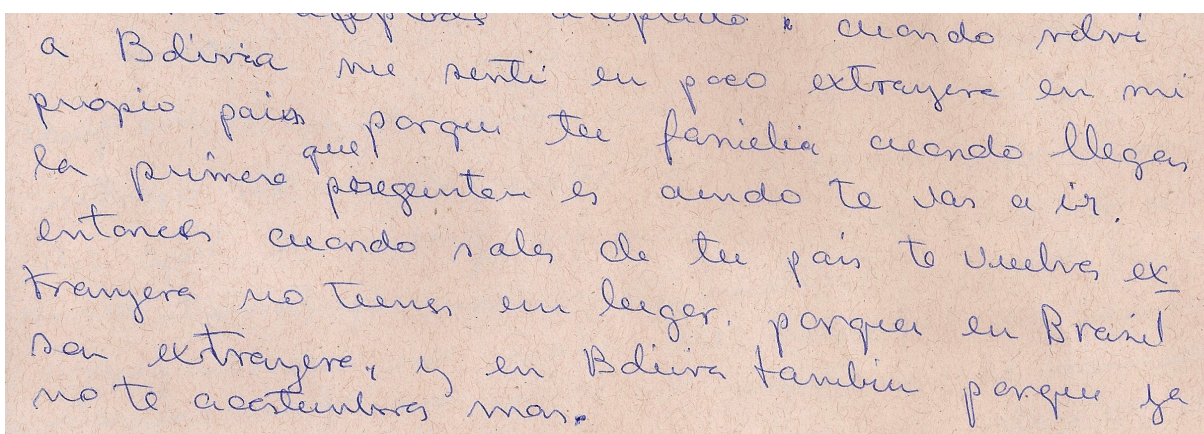 aceptado. cuando volvi
a Bolivia me senti un poco extrayera en mi
propio pais porque tu familia cuando llegas
la primero que pregunten es cuando te vas a ir.
entonces cuando sales de tu pais te vuelves ex
tranyera no tienes un lugar. porque en Brasil
son extrayera, y en Bolivia tambien porque ya
no te acostumbras mas.